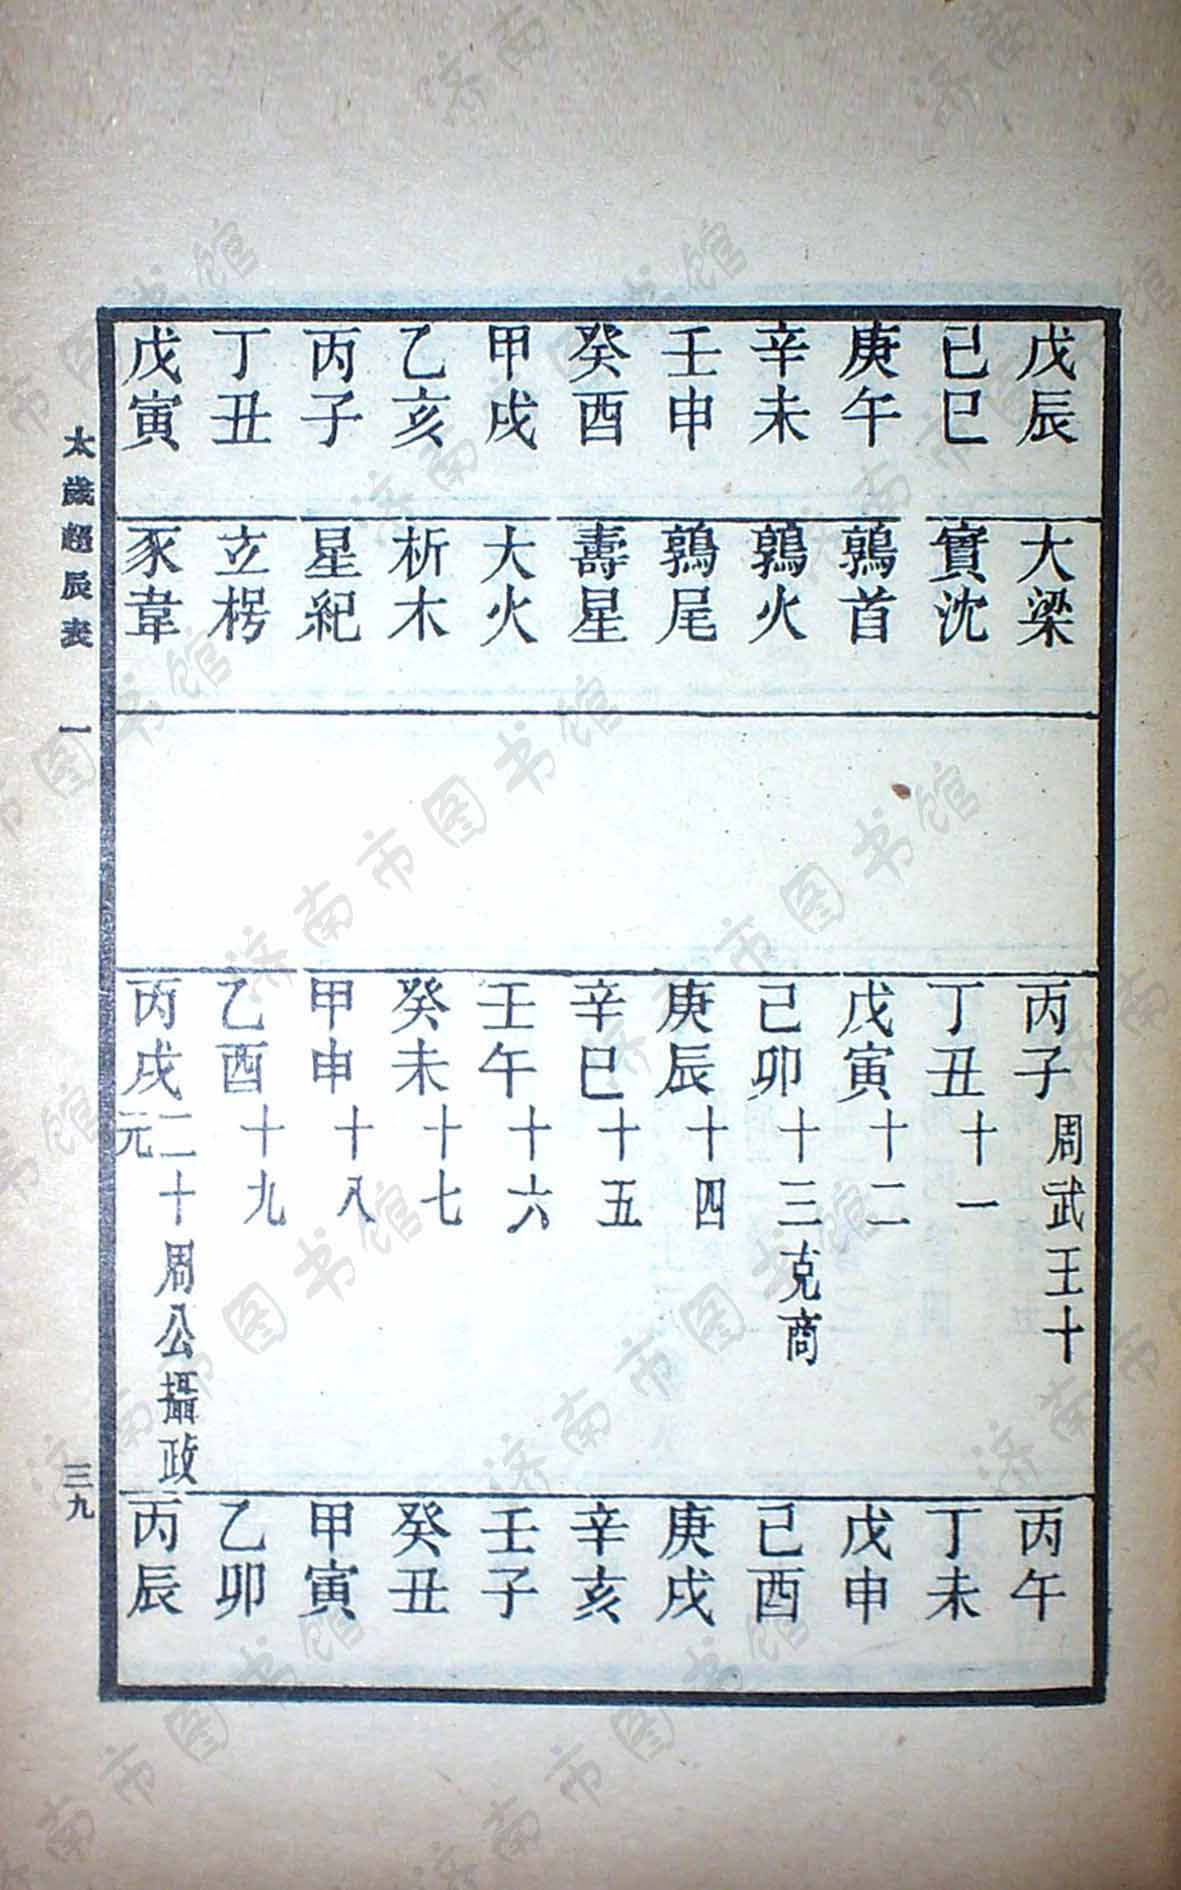 戊辰 大梁 丙子 周武王十 丙午
己巳 實沈 丁丑 十一 丁未
庚午 鶉首 戊寅 十二 戊申
辛未 鶉火 己卯 十三克商 己酉
壬申 鶉尾 庚辰 十四 庚戌
癸酉 壽星 辛巳 十五 辛亥
甲戌 大火 壬午 十六 壬子
乙亥 析木 癸未 十七 癸丑
丙子 星紀 甲申 十八 甲寅
丁丑 立枵 乙酉 十九 乙卯
戊寅 豕韋 丙戌 二十周公攝政元 丙辰
太歲超辰表 一 三九
济南市图书馆